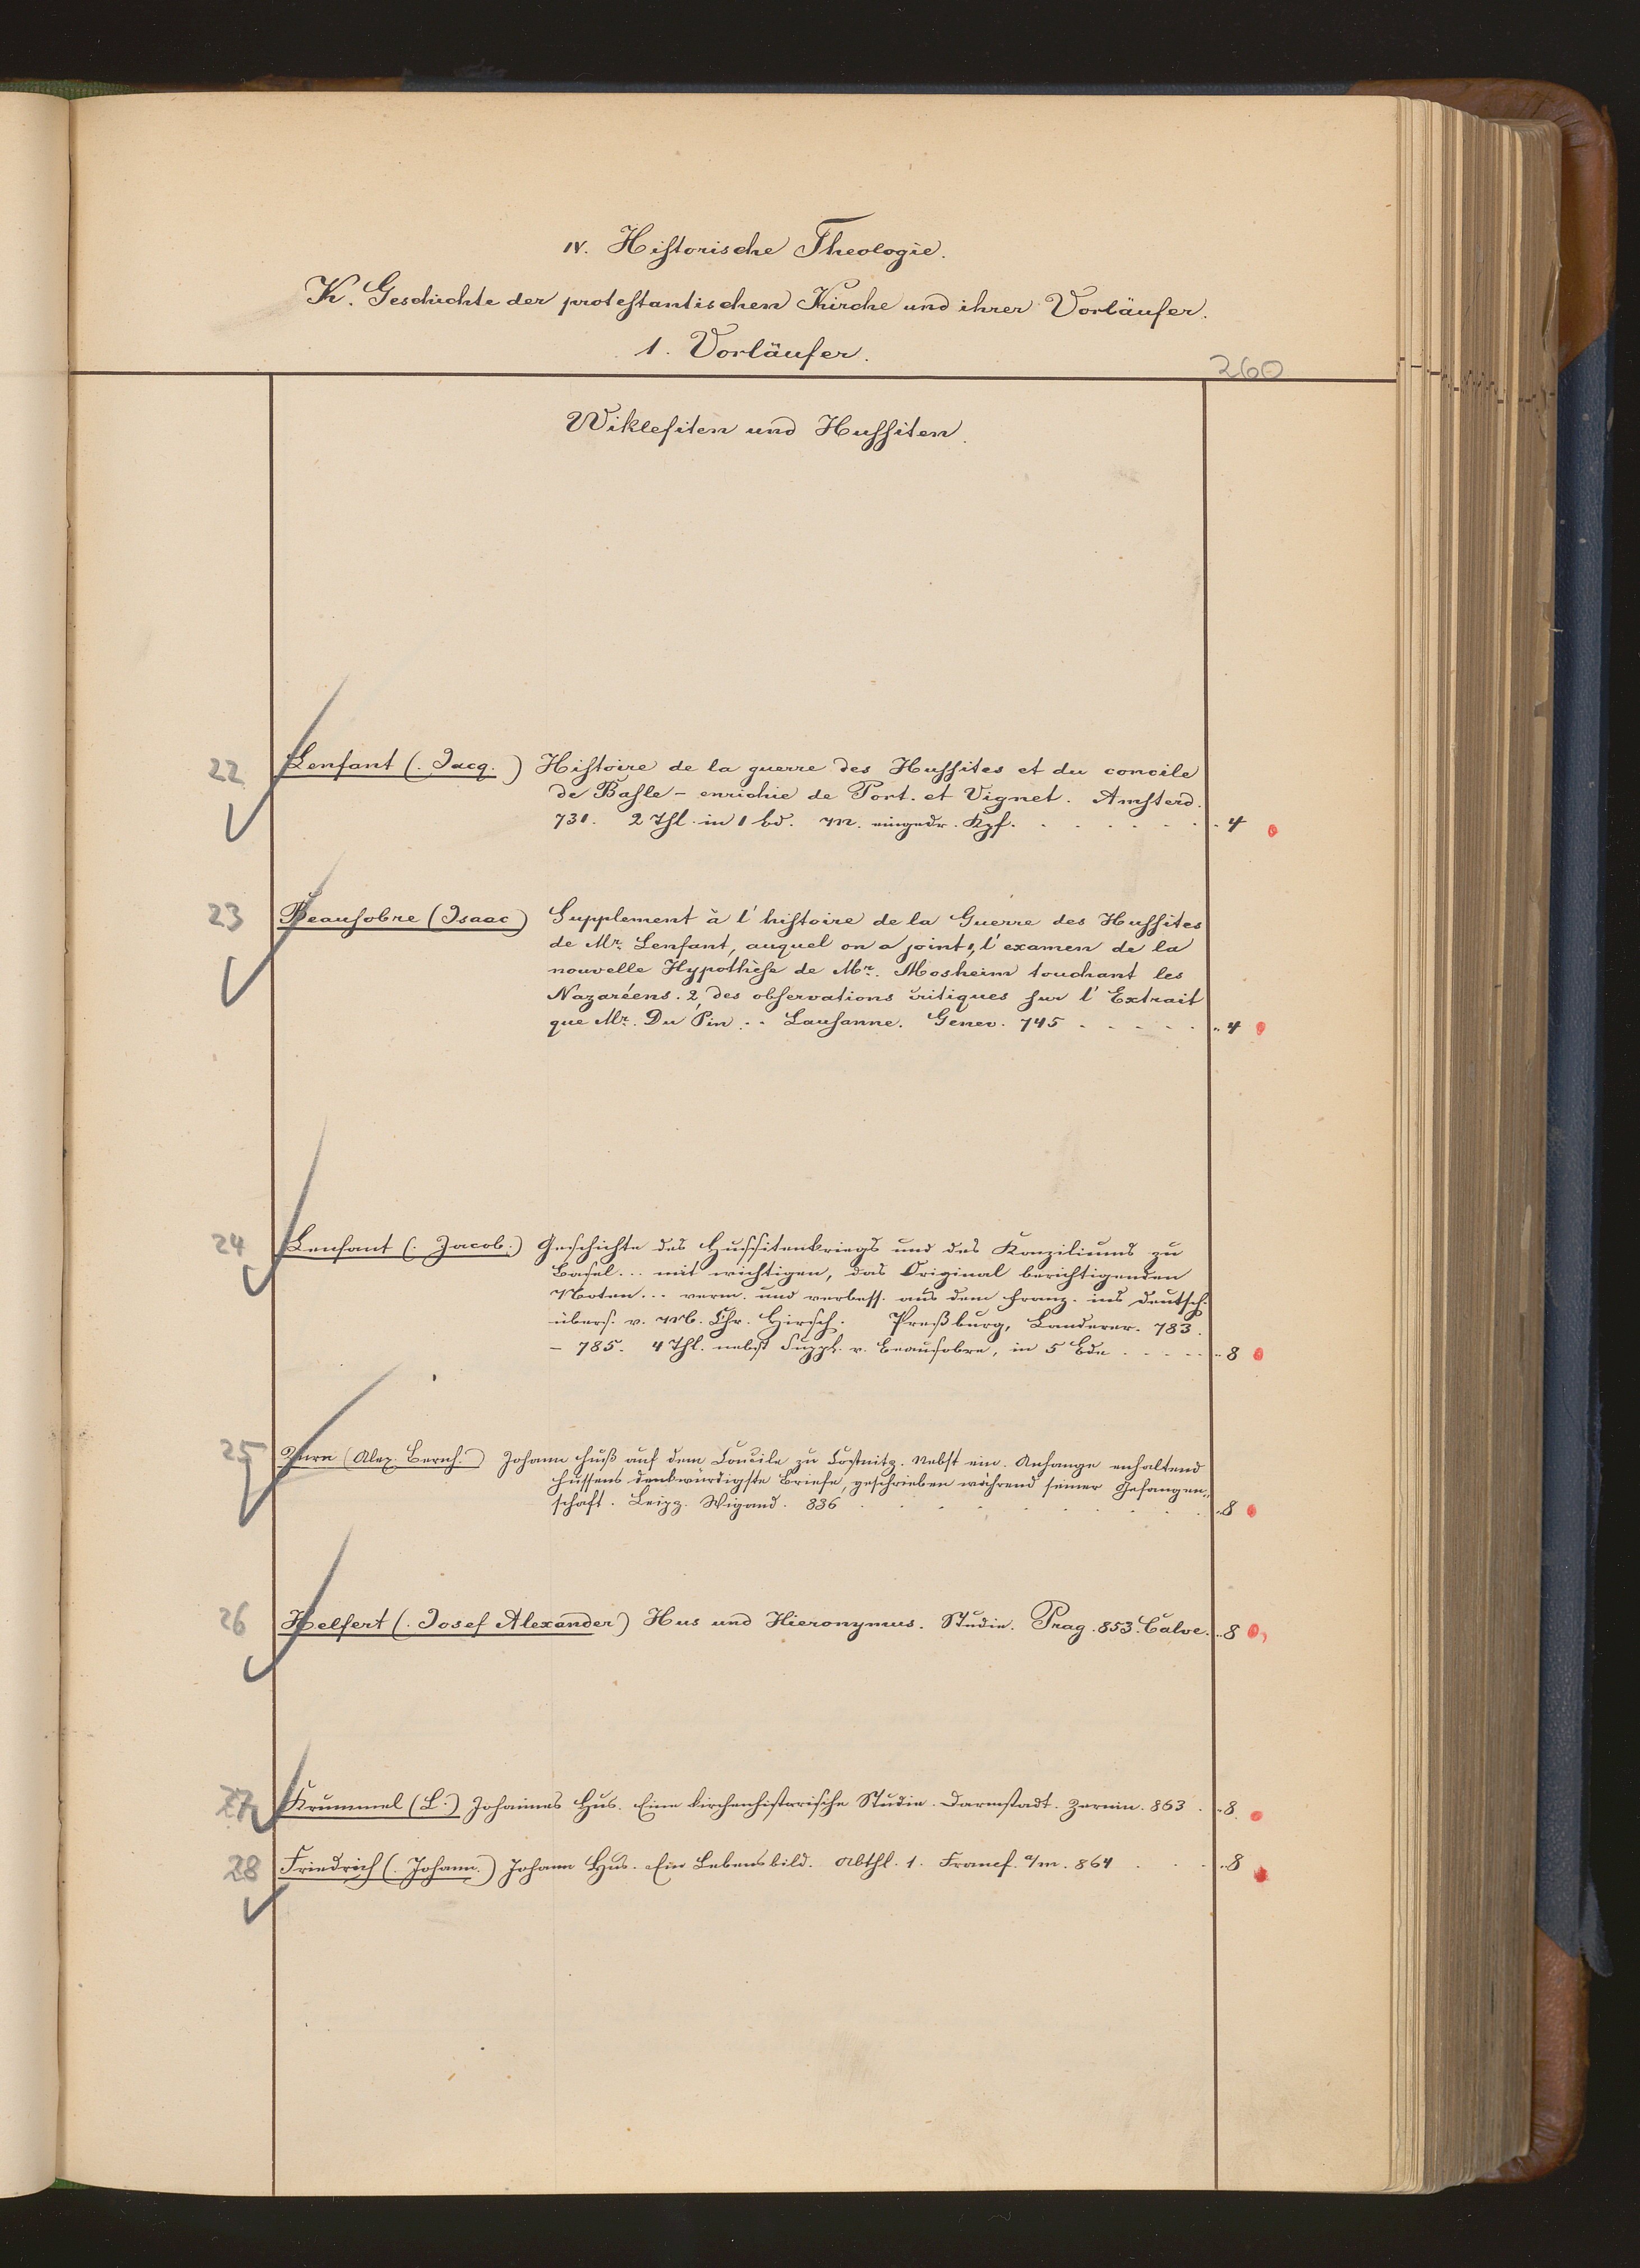 IV. Historische Theologie.
K. Geschichte der protestantischen Kirche und ihrer Vorläufer.
1. Vorläufer.
260
Wiklefiten und Hussiten.
22 Lenfant (. Jacq. ) Histoire de la guerre des Hussites et du concile
de Basle - enrichie de Port. et Vignet. Amsterd.
731. 2 Thl. in 1 bd. M. eingedr. Kpf. . . . . . . 4
23 Beausobre (Isaac) Supplement à l'histoire de la Guerre des Hussites
de Mr. Lenfant, auquel on a joint 1, l'examen de la
nouvelle Hypothèse de Mr. Mosheim touchant les
Nazaréens. 2, des observations critiques sur l'Extrait
que Mr. Du Pin .. Lausanne. Genev. 745 . . . . . 4
24 Lenfant (. Jacob.) Geschichte des Hussitenkriegs und des Konziliums zu
Basel... mit wichtigen, das Original berichtigenden
Noten... verm. und verbess. aus dem Franz. ins Deutsch.
übers. v. M. Chr. Hirsch. Preßburg, Landerer. 783.
- 785. 4 Thl. nebst Suppl. v. Beausobre, in 5 Bde . . . . 8
25 Zürn (Alex. Bernh.) Johann Huß auf dem Concile zu Costnitz. Nebst ein. Anhange enhaltend
Hussens denkwürdigste Briefe, geschrieben während seiner Gefangen„
schaft. Leipz. Wigand. 836 . . . . . . . . 8
26 Helfert (. Josef Alexander) Hus und Hieronymus. Studie. Prag. 853. Calve. 8
27 Krummel (L.) Johannes Hus. Eine kirchenhistorische Studie. Darmstadt. Zernin. 863 . 8
28 Friedrich (. Johann.) Johann Hus. Ein Lebensbild. Abthl. 1. Francf. a/m. 864 . . . 8